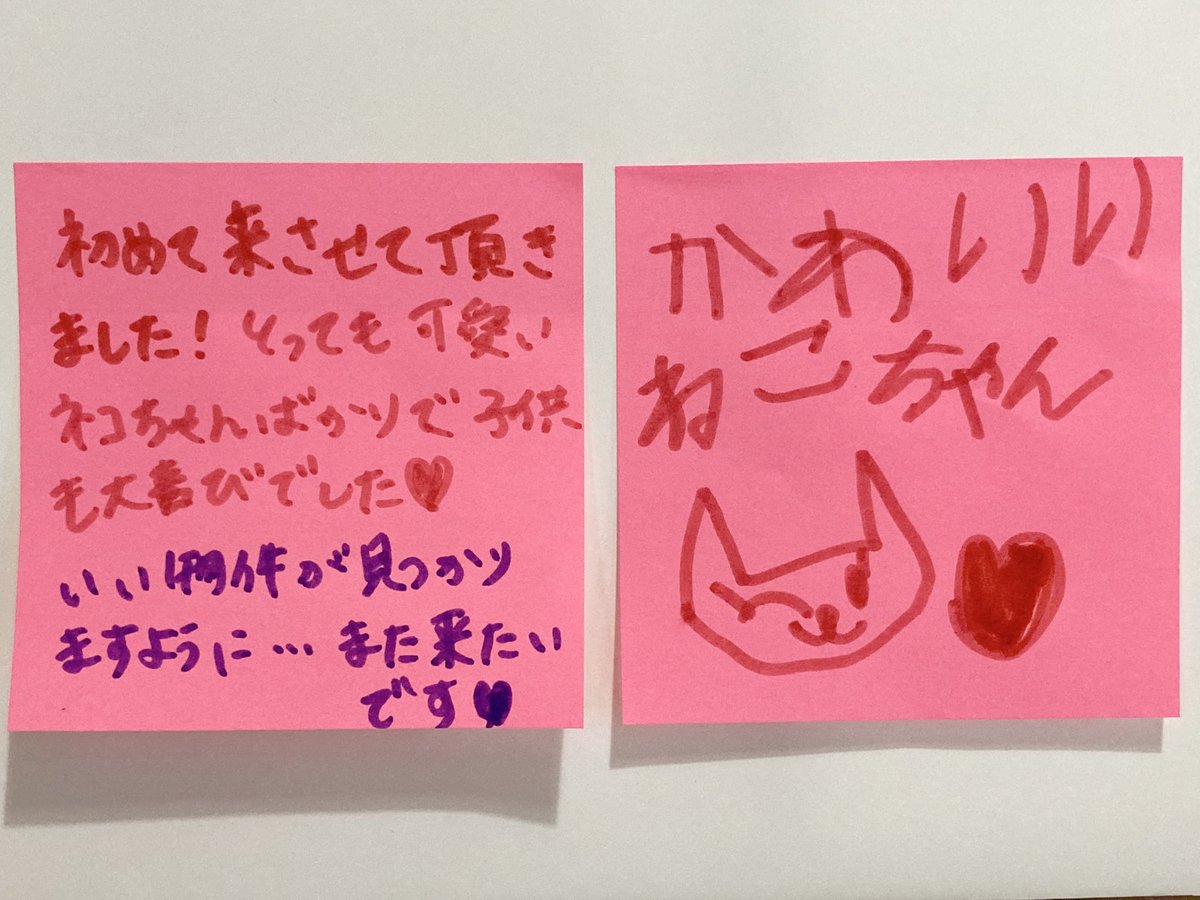 初めて来させて頂き
ました！とっても可愛い
ネコちゃんばかりで子供
も大喜びでした♥
いい物件が見つかり
ますように…また来たい
です♥
かわいい
ねこちゃん